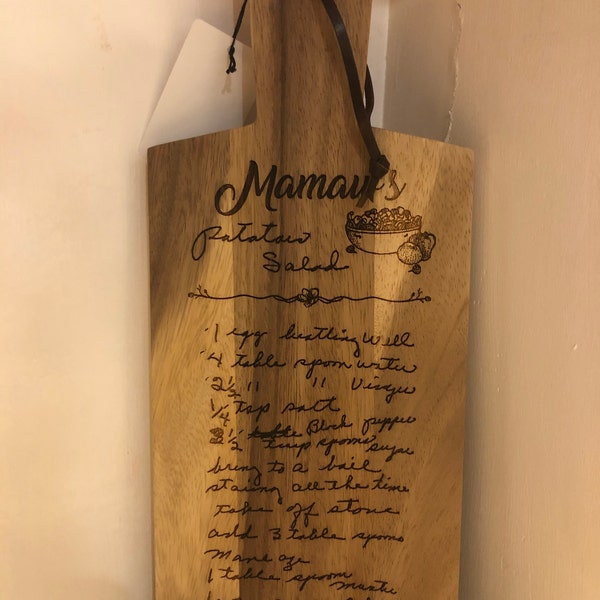 Mamaw's
Potatoes
Salad
1 egg beatting well
4 table spoon water
2 1/2 " " Vinger
1/4 tsp salt
Black pepper
2 1/2 spoons sugar
bring to a boil
staing all the time
take off stove
add 3 table spoons
1 table spoom